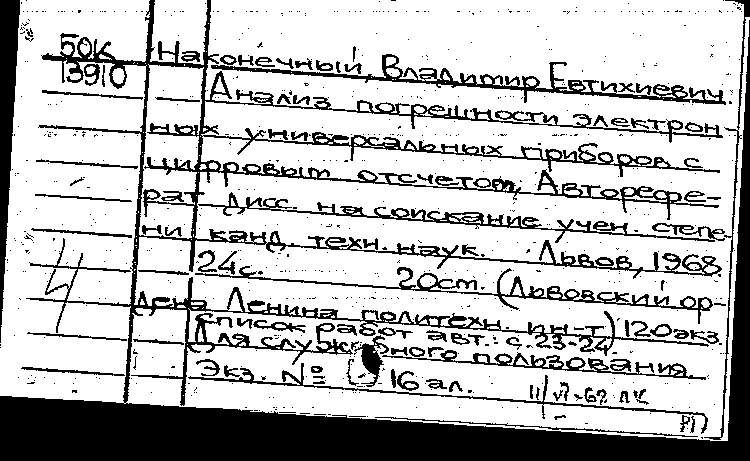 50К
13910
Наконечный, Владимир Евтихиевич.
Анализ погрешности электрон-
ных универсальных приборов с
цифровым отсчетом, Авторефе-
рат дисс. на соискание учен. степе-
ни канд. техн. наук. Львов, 1968.
24с. 20см. (Львовский ор-
дена Ленина политехн. ин-т) 120экз.
Список работ авт.: с. 23-24.
Для служебного пользования.
Экз. №